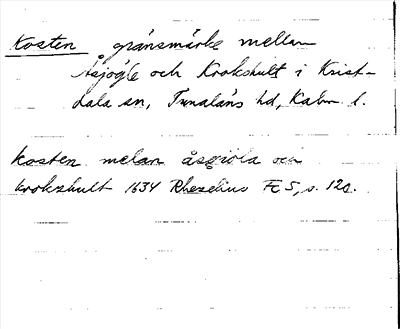 Kosten gränsmärke mellan
Åsjögle och Krokshult i Krist-
dala sn, Tunaläns hd, Kalm. l.
kosten melan åsgiöla och
krokshult 1634 Rhezelius FC 5, s. 120.